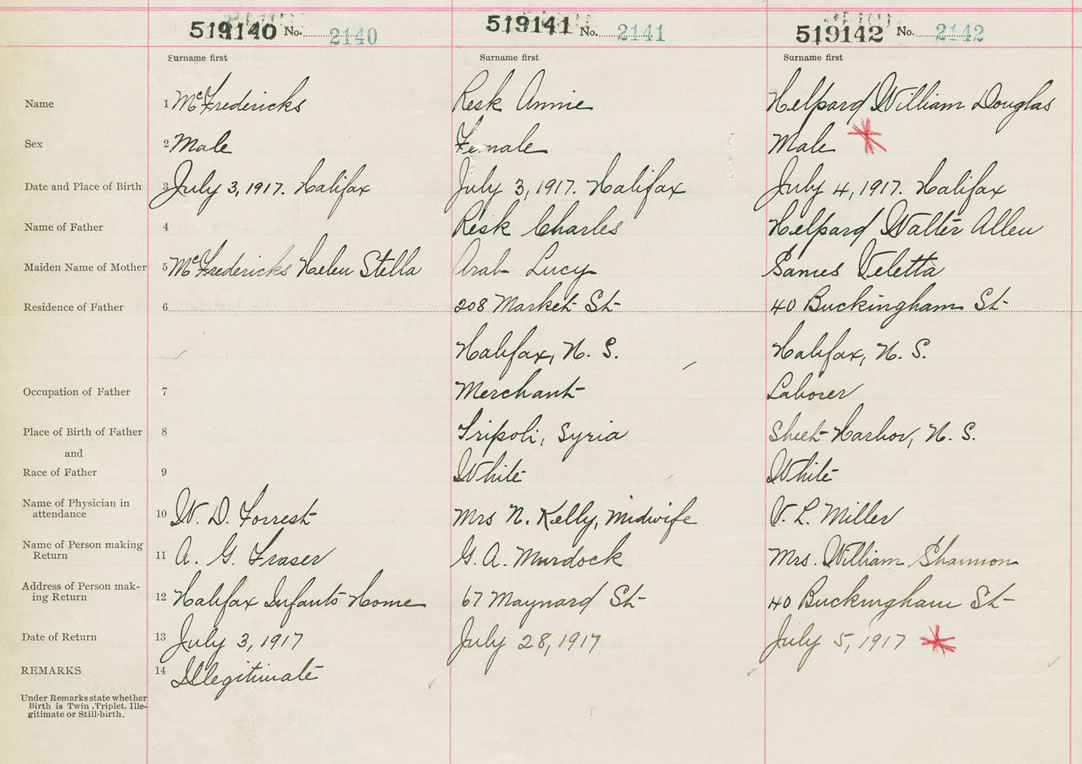 519140 No. 2140 519141 No. 2141 519142 No. 2142
Surname first Surname first Surname first
Name 1 McFredericks Resk Annie Helpard William Douglas
Sex 2 Male Female Male
Date and Place of Birth 3 July 3, 1917. Halifax July 3, 1917. Halifax July 4, 1917. Halifax
Name of Father 4 Resk Charles Helpard Walter Allen
Maiden Name of Mother 5 McFredericks Helen Stella Arab Lucy Veletta
Residence of Father 6 208 Market St 40 Buckingham St
Halifax, N. S. Halifax, N. S.
Occupation of Father 7 Merchant Laborer
Place of Birth of Father 8 Tripoli, Syria Sheet Harbor, N. S.
and
Race of Father 9 White White
Name of Physician in
attendance 10 W. D. Forrest Mrs N. Kelly, Midwife V. L. Miller
Name of Person making
Return 11 A. G. Fraser G. A. Murdock Mrs. William Shannon
Address of Person mak-
ing Return 12 Halifax Infants Home 67 Maynard St 40 Buckingham St
Date of Return 13 July 3, 1917 July 28, 1917 July 5, 1917
REMARKS 14 Illegitimate
Under Remarks state whether
Birth is Twin, Triplet, Ille-
gitimate or Still-birth.